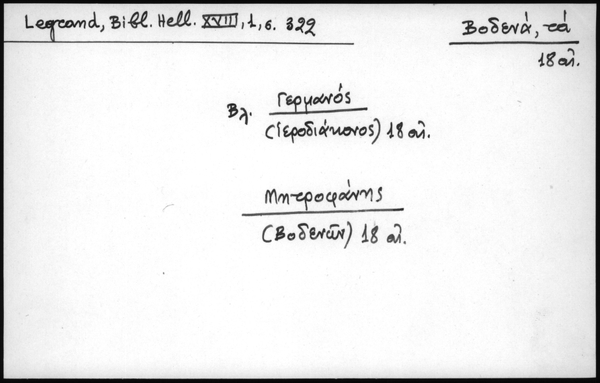 Legrand, Bibl. Hell. XVIII, 1, σ. 322
Βοδενά, τά
18 αἰ.
Βλ. Γερμανός
(ἱεροδιάκονος) 18 αἰ.
Μητροφάνης
(Βοδενῶν) 18 αἰ.